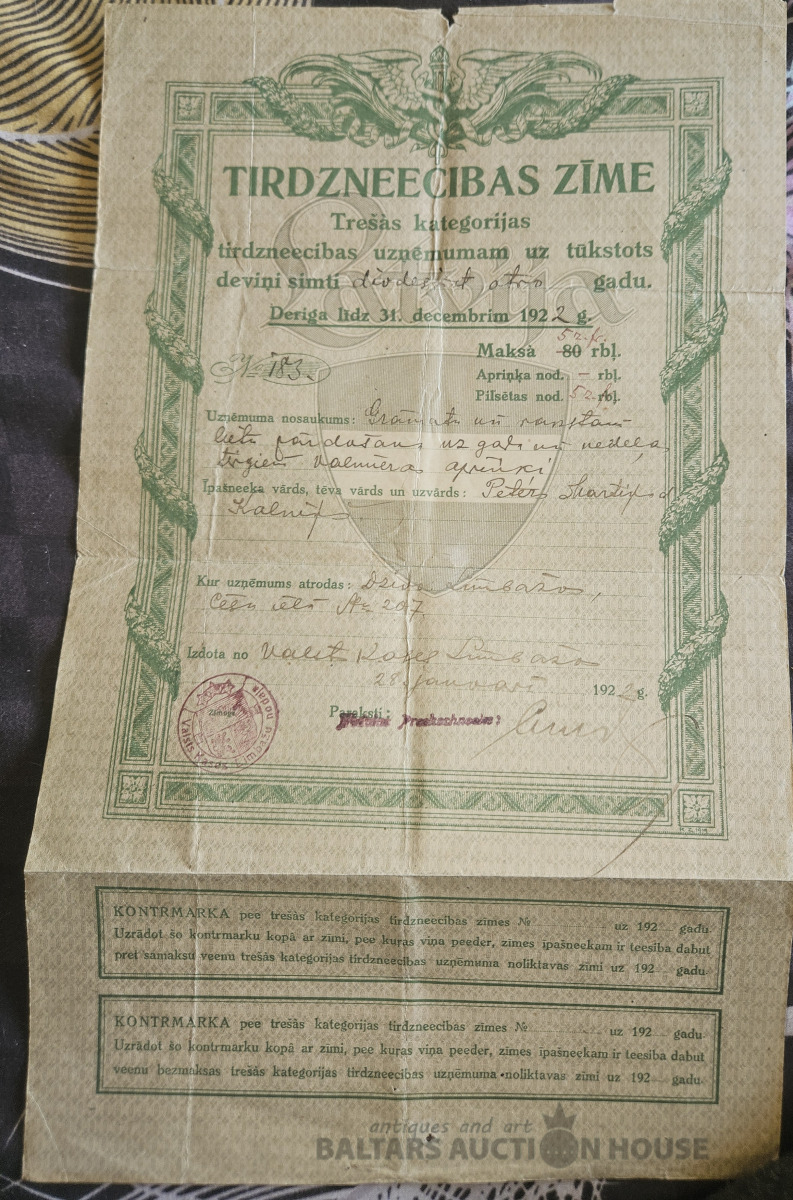 TIRDZNEECIBAS ZĪME
Trešàs kategorijas
tirdzneecibas uzņēmumam uz tūkstots
deviņi simti divdesmit otro gadu.
Deriga līdz 31. decembrim 1922 g.
№ 183.
Maksà 80 rbļ.
Apriņķa nod. — rbļ.
Pilsētas nod. rbļ.
Uzņēmuma nosaukums: Grāmatu un
lietu pārdošana uz gada un nedēļas
tirgiem Valmieras apriņķī
Īpašneeka vārds, tēva vārds un uzvārds: Peters
Kalniņš
Kur uzņēmums atrodas: Dzīvo Limbažos,
Cēsu ielā № 207
Izdota no Valsts Kases Limbažos
28. janvarī 1922 g.
Zimogs
Valsts Kases
Paraksti:
KONTRMARKA pee trešās kategorijas tirdzneecibas zīmes № uz 192 gadu.
Uzrādot šo kontrmarku kopā ar zīmi, pee kuras viņa peeder, zīmes īpašneekam ir teesiba dabut
pret samaksu veenu trešās kategorijas tirdzneecibas uzņēmuma noliktavas zīmi uz 192 gadu.
KONTRMARKA pee trešās kategorijas tirdzneecibas zīmes № uz 192 gadu.
Uzrādot šo kontrmarku kopā ar zīmi, pee kuras viņa peeder, zīmes īpašneekam ir teesiba dabut
veenu bezmaksas trešās kategorijas tirdzneecibas uzņēmuma noliktavas zīmi uz 192 gadu.
antiques and art
BALTARS AUCTION HOUSE